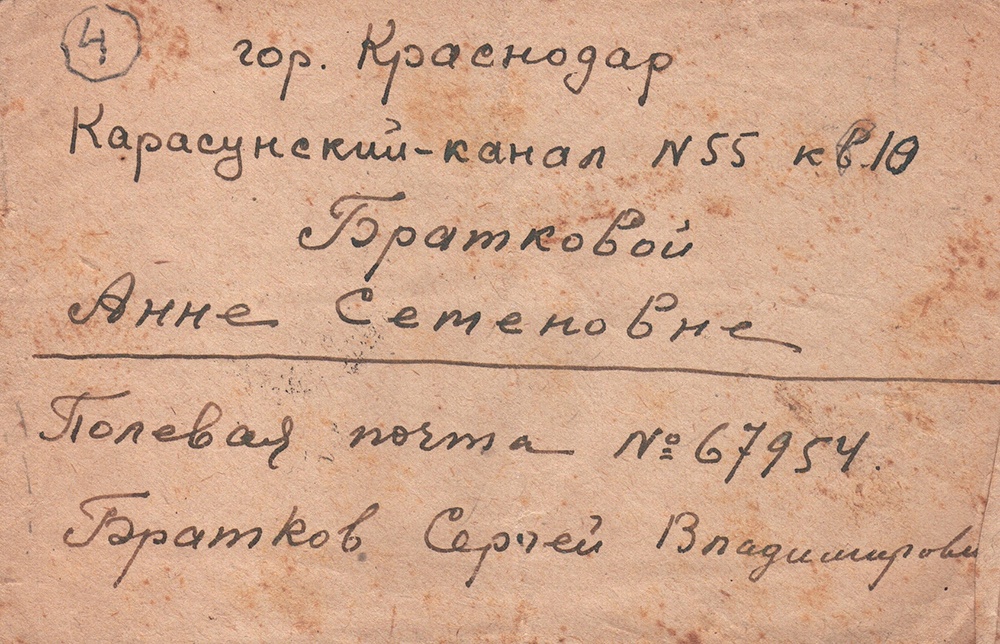 4
гор. Краснодар
Карасунский-канал N 55 кв.10
Братковой
Анне Сетеновне
Полевая почта № 67954.
Братков Сергей Владимирови